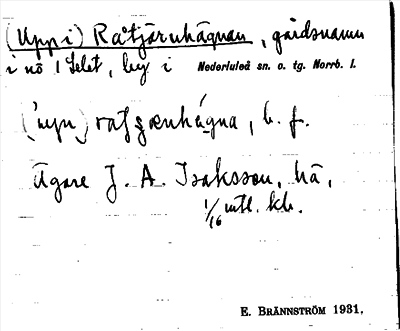 (Uppi) Råtjärnhägnan, gårdsnamn
i nö 1 delet, by i Nederluleå sn. o. tg. Norrb. l.
hägna, b. f.
Ägare J. A. Isaksson, hä,
1/16 mtl. kr.
E. BRÄNNSTRÖM 1931.